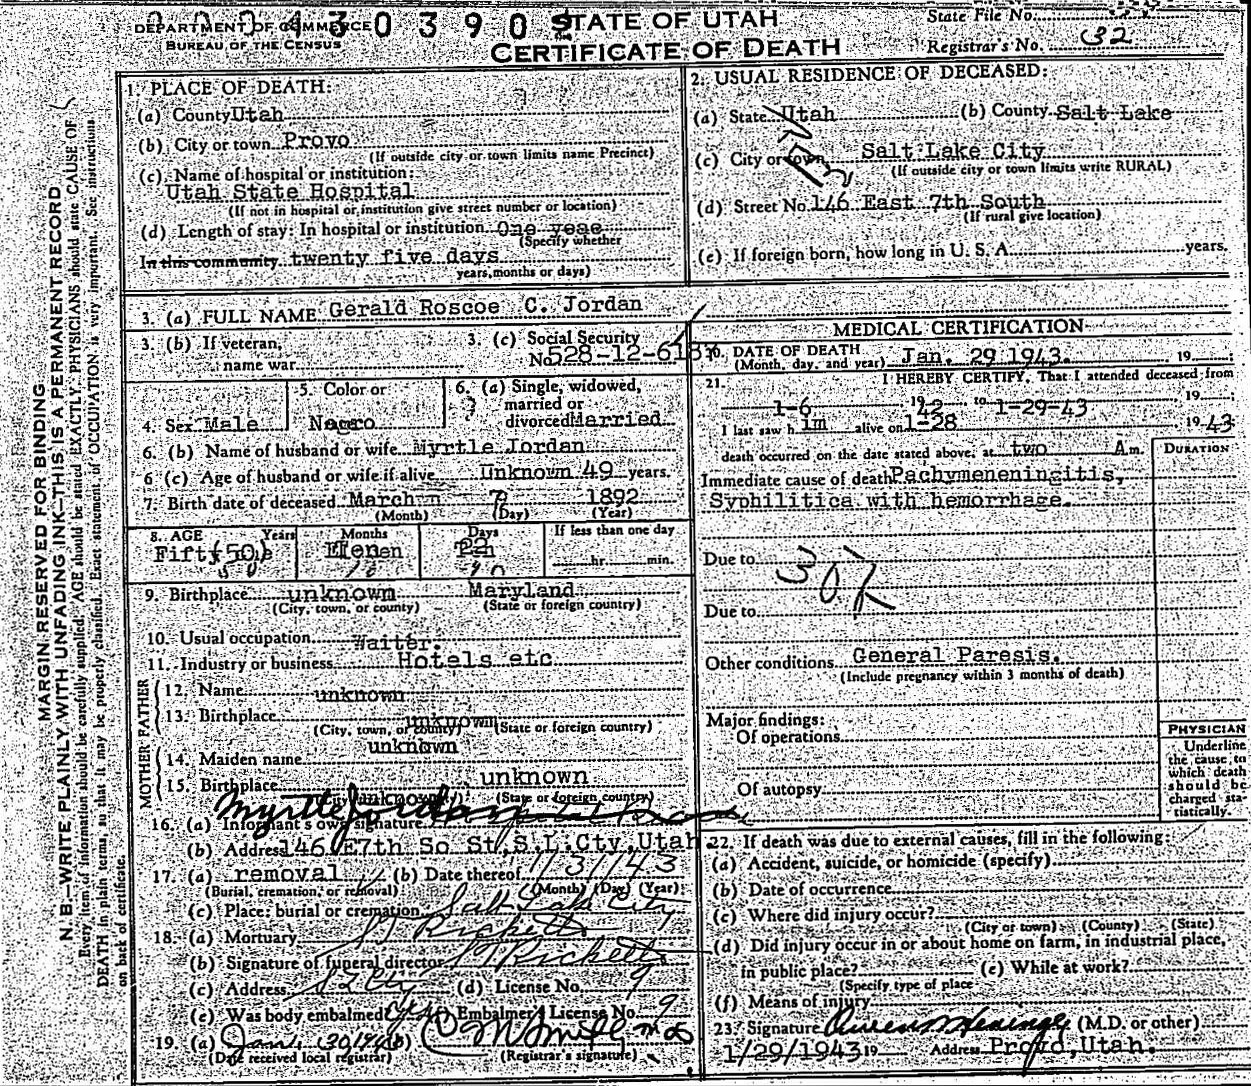 DEPARTMENT OF COMMERCE
BUREAU OF THE CENSUS
STATE OF UTAH
CERTIFICATE OF DEATH
State File No.
Registrar's No. 32
MARGIN RESERVED FOR BINDING
N. B.—WRITE PLAINLY, WITH UNFADING INK—THIS IS A PERMANENT RECORD
Every item of information should be carefully supplied. AGE should be stated EXACTLY. PHYSICIANS should state CAUSE OF
DEATH in plain terms, so that it may be properly classified. Exact statement of OCCUPATION is very important. See instructions
on back of certificate.
1. PLACE OF DEATH:
(a) County Utah
(b) City or town Provo
(If outside city or town limits name Precinct)
(c) Name of hospital or institution:
Utah State Hospital
(If not in hospital or institution give street number or location)
(d) Length of stay: In hospital or institution One year
(Specify whether
In this community twenty five days
years, months or days)
2. USUAL RESIDENCE OF DECEASED:
(a) State Utah (b) County Salt Lake
(c) City or town Salt Lake City
(If outside city or town limits write RURAL)
(d) Street No. 146 East 7th South
(If rural give location)
(e) If foreign born, how long in U. S. A. years.
3. (a) FULL NAME Gerald Roscoe C. Jordan
3. (b) If veteran,
name war
3. (c) Social Security
No. 528-12-61
4. Sex Male
5. Color or
Negro
6. (a) Single, widowed,
married or
divorced Married
6. (b) Name of husband or wife Myrtle Jordan
6 (c) Age of husband or wife if alive Unknown 49 years.
7. Birth date of deceased March 1892
(Month) (Day) (Year)
8. AGE Years Months Days If less than one day
Fifty (50)
hr. min.
9. Birthplace unknown Maryland
(City, town, or county) (State or foreign country)
10. Usual occupation Waiter.
11. Industry or business Hotels etc
FATHER
12. Name unknown
13. Birthplace unknown
(City, town, or county) (State or foreign country)
MOTHER
14. Maiden name unknown
15. Birthplace unknown unknown
(State or foreign country)
16. (a) Informant's own signature Myrtle Jordan
(b) Address 146 E 7th So St. S.L. Cty, Utah.
17. (a) removal (b) Date thereof 1/31/43
(Burial, cremation, or removal) (Month) (Day) (Year)
(c) Place: burial or cremation Salt Lake City
18. (a) Mortuary Ricketts
(b) Signature of funeral director Ricketts
(c) Address S L City (d) License No. 9
(e) Was body embalmed yes Embalmer License No. 9
19. (a) Jan. 30 1943 (b)
(Date received local registrar) (Registrar's signature)
MEDICAL CERTIFICATION
20. DATE OF DEATH
(Month, day, and year) Jan. 29 1943. , 19 ;
21. I HEREBY CERTIFY, That I attended deceased from
1-6 , 19 42 to 1-29-43 , 19 ;
I last saw h im alive on 1-28 , 19 43
death occurred on the date stated above, at two A m.
DURATION
Immediate cause of death Pachymeneningitis,
Syphilitica with hemorrhage.
Due to
307
Due to
Other conditions General Paresis.
(Include pregnancy within 3 months of death)
Major findings:
Of operations
Of autopsy
PHYSICIAN
Underline
the cause to
which death
should be
charged sta-
tistically.
22. If death was due to external causes, fill in the following:
(a) Accident, suicide, or homicide (specify)
(b) Date of occurrence
(c) Where did injury occur?
(City or town) (County) (State)
(d) Did injury occur in or about home on farm, in industrial place,
in public place? (e) While at work?
(Specify type of place
(f) Means of injury
23. Signature (M.D. or other)
1/29/1943 19 Address Provo, Utah.